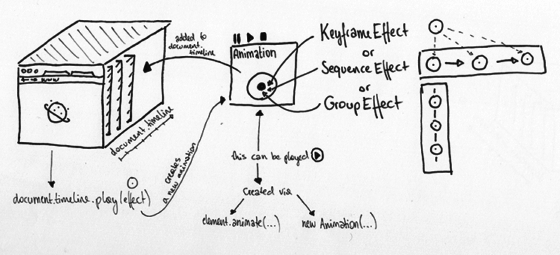 added to
document.
timeline
Animation
Keyframe Effect
or
Sequence Effect
or
Group Effect
document.timeline
creates
a new animation
this can be played
document.timeline.play(effect)
Created via
element.animate(...)
new Animation(...)